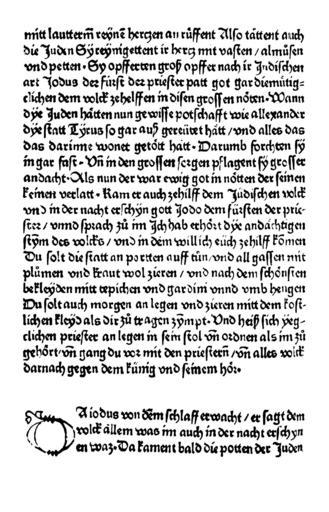 mitt lautterm̄ reyne᷑ hertzen an rüffent Also tättent auch
die Juden Sÿ reynigettent ir hertz mit vasten / almůsen
vnd petten. Sÿ opfferten groß opffer nach ir Jüdischen
art Jodus der fürst der priester patt got gar diemütig⸗
clichen dem volck zehelffen in disen grossen nötten. Wann
dÿe Juden hätten nun gewisse potschafft wie allexander
dÿe statt Tÿrus so gar auß gereütet hätt / vnd alles das
das darinne wonet getött hått. Darumb forchten sÿ
in gar fast. Vn̄ in den grossen sorgen pflagent sÿ grosser
andacht. Als nun der war ewig got in nötten der seinen
keinen verlatt. Kam er auch zehilff dem Jüdischen volck
vnd in der nacht erschÿn gott Jodo dem fürsten der prie⸗
ster / vnnd sprach zů im Jch hab erhört dÿe andächtigen
stÿm des volcks / vnd in dem will ich eüch zehilff kömen
Du solt die statt an portten auff tůn / vnd all gassen mit
plůmen vnd kraut wol zieren / vnd nach dem schönsten
bekleÿden mitt tepichen vnd gardini vnnd vmb hengen
Du solt auch morgen an legen vnd zieren mitt dem kost⸗
lichen kleÿd als dir zů tragen zÿmpt. Vnd heiß sich ÿeg⸗
clichen priester an legen in sein stol vn̄ ordnen als im zů
gehört / vn̄ gang du vor mit den priestern / vn̄ alles volck
darnach gegen dem künig vnd seinem hör.
DA iodus von dem schlaff erwacht / er sagt dem
volck allem was im auch in der nacht erschyn
en waz. Da kament bald die potten der Juden